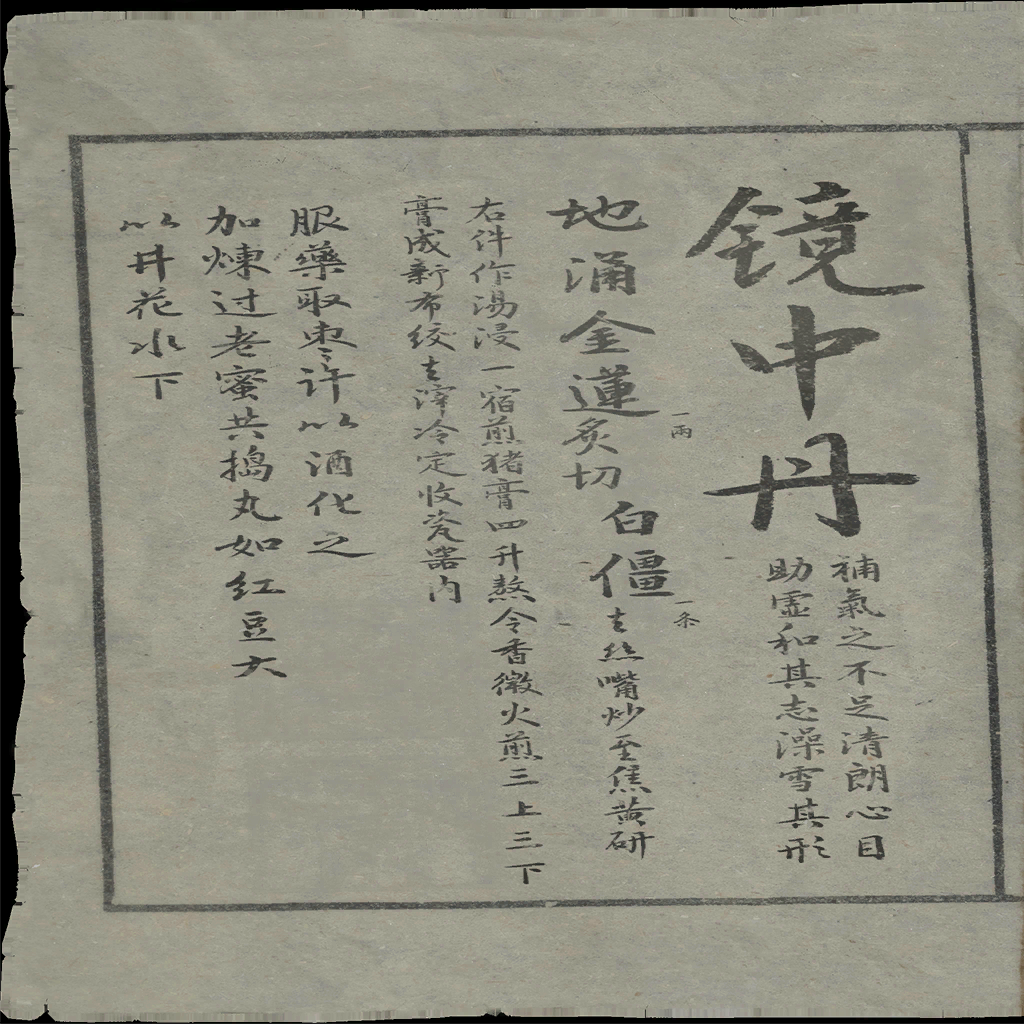 镜中丹
補氣之不足清朗心目
助虛和其志澡雪其形
地涌金蓮炙切
一兩
白僵
一条
去丝嘴炒至焦黄研
右件作湯浸一宿煎猪膏四升熬令香微火煎三上三下
膏成新布绞去滓冷定收瓷器内
服藥取枣许以酒化之
加煉过老蜜共搗丸如红豆大
以井花水下